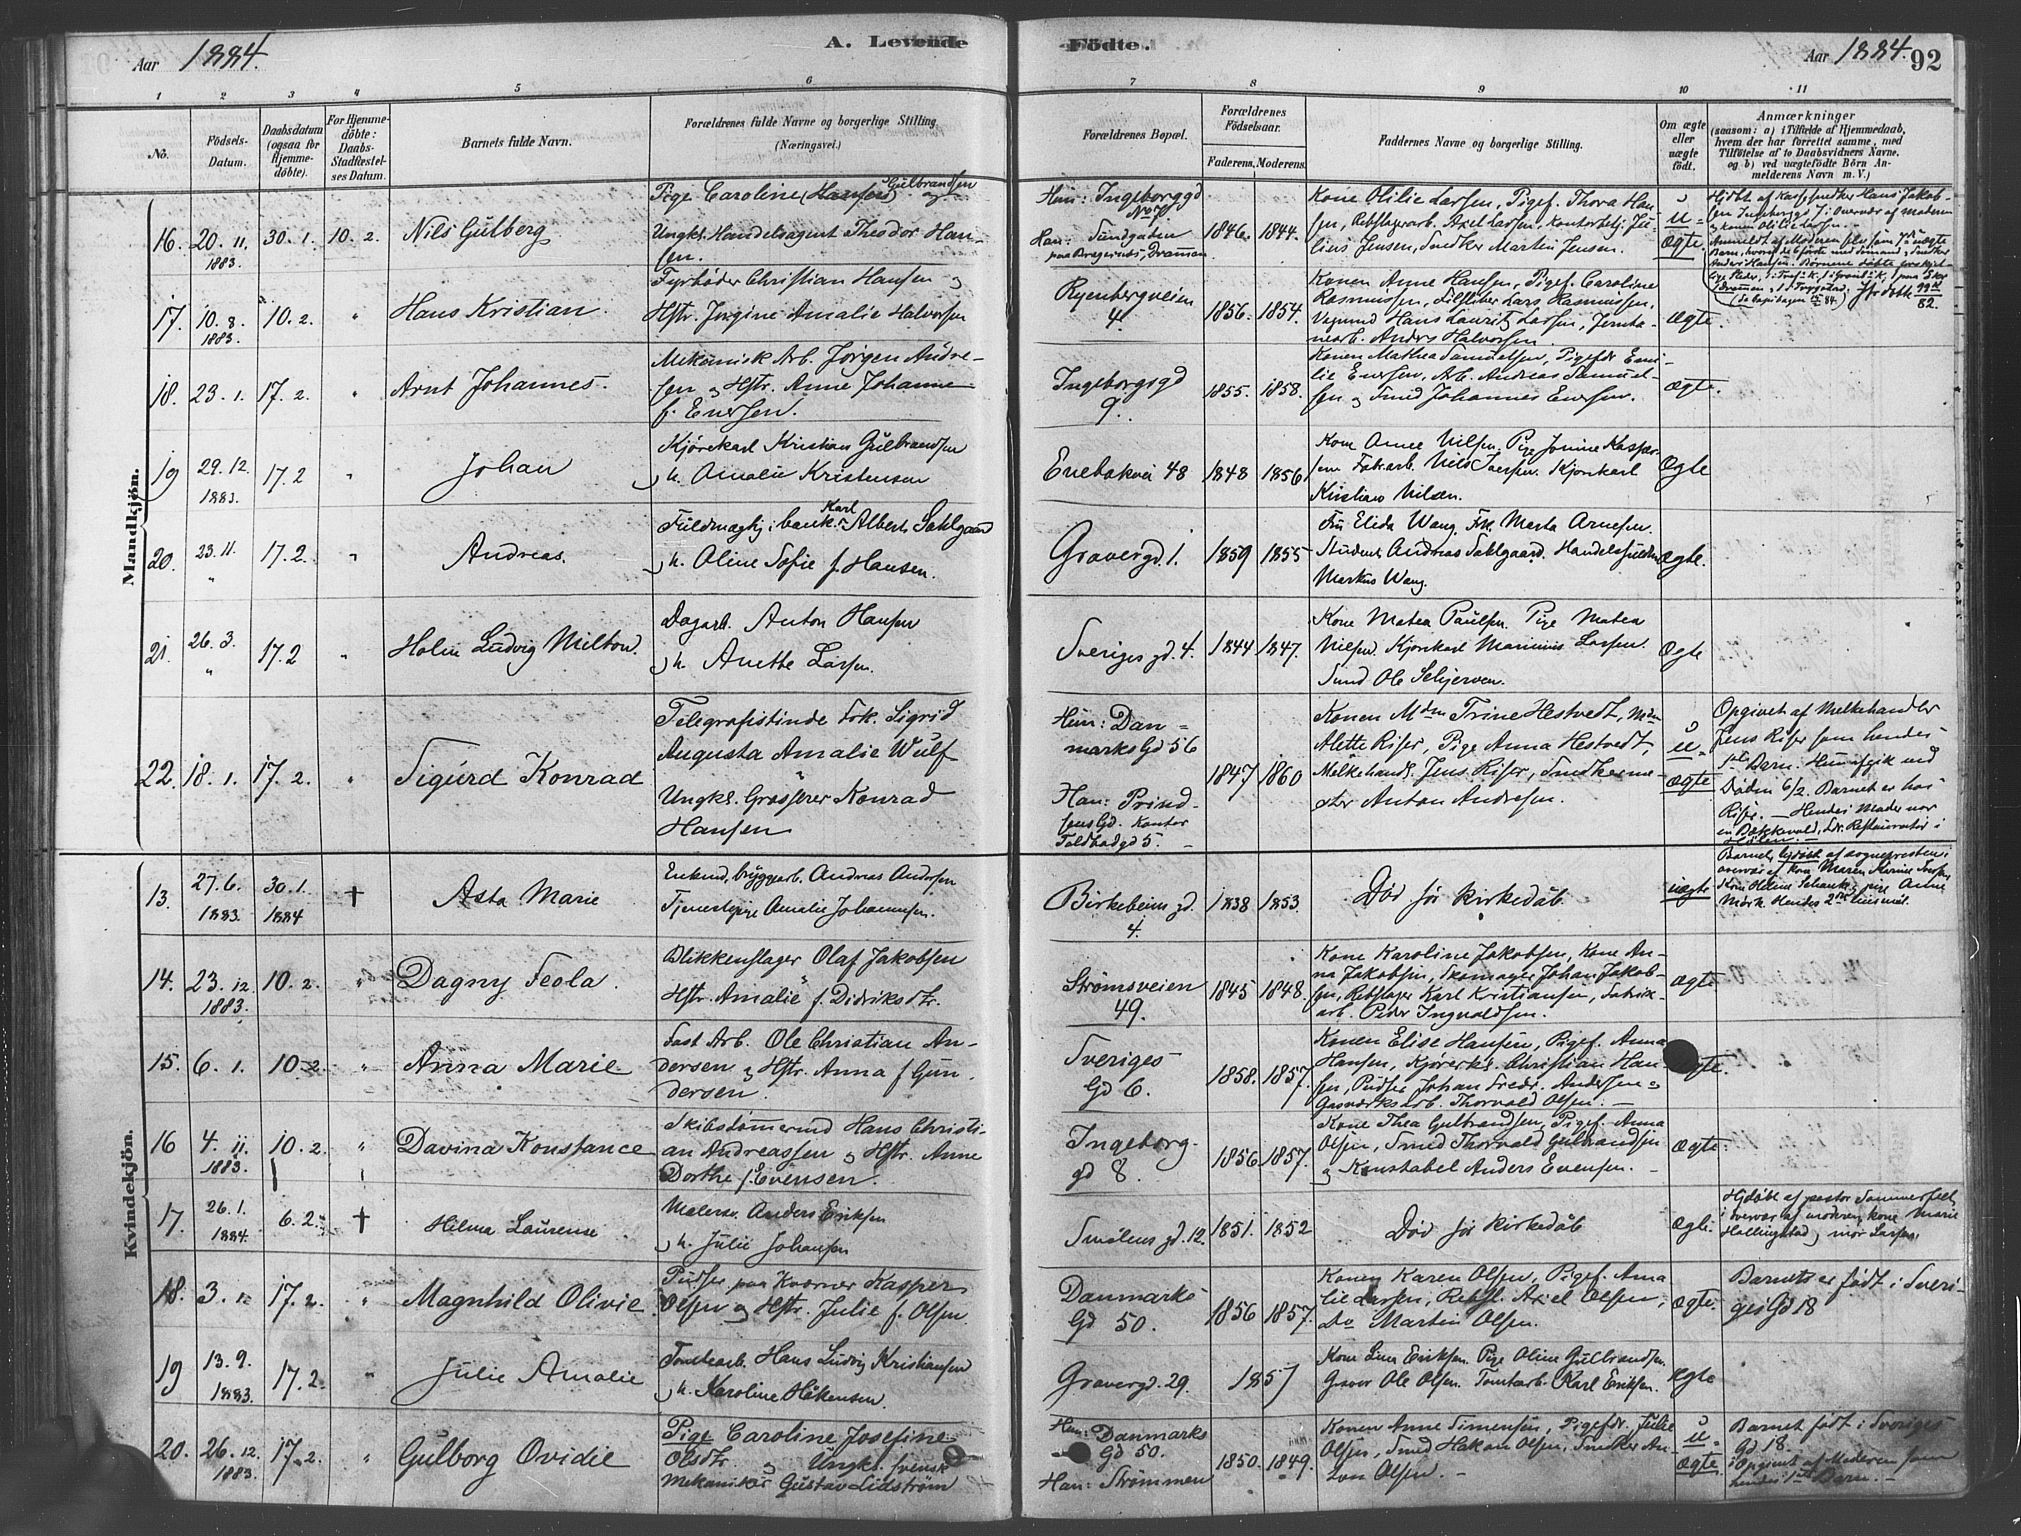 Aar 1884.
A. Levende
Födte.
Aar 1884.
92
1 2 3 4 5 6 7 8 9 10 11
No.
Födsels-
Datum.
Daabsdatum
(ogsaa for
Hjemme-
döbte).
For Hjemme-
döbte:
Daabs-
Stadfæstel-
ses Datum.
Barnets fulde Navn.
Forældrenes fulde Navne og borgerlige Stilling.
(Næringsvei.)
Forældrenes Bopæl.
Forældrenes
Födselsaar.
Faderens. Moderens.
Faddernes Navne og borgerlige Stilling.
Om ægte
eller
uægte
födt.
Anmærkninger
(saasom: a) i Tilfælde af Hjemmedaab,
hvem der har forrettet samme, med
Tilföielse af to Daabsvidners Navne,
og b) ved uægtefödte Börn An-
melderens Navn m. V.)
Mandkjön.
16. 20. 11. 1883. 30. 1. 10. 2. Nils Gulberg
Pige Caroline (Hansen) Gulbrandsen og
Ungk. Handelsagent Theodor Han-
sen.
Hun: Ingeborggd
No 7
Han: Sundgaden
paa Bragernes, Drammen
1846. 1844.
Kone Olilie Larsen, Pigef. Thora Han-
sen, Rebslagerarb. Axel Larsen, Kontorbetj. Ju-
lius Jensen, Snedker Martin Jensen.
u-
ægte.
17. 10. 8. 1883. 10. 2. " Hans Kristian.
Fyrbøder Christian Hansen og
Hstr. Jørgine Amalie Halvorsen
Ryenbergveien
4.
1856. 1854.
Konen Anne Hansen, Pigef. Caroline
Rasmussen, Filhugger Lars Rasmussen,
Vognmd Hans Lauritz Larsen, Jernba-
nearb. Anders Halvorsen.
Ægte.
18. 23. 1. 17. 2. " Arnt Johannes.
Mekanisk Arb. Jørgen Andre-
sen og Hstr. Anne Johanne
f. Enersen.
Ingeborgsgd
9.
1855. 1858.
Konen Mathea Samuelsen, Pigefr. Emi-
lie Enersen, Arb. Andreas Samuel-
sen og Smed Johannes Enersen.
Ægte.
19 29. 12. 1883. 17. 2 " Johan
Kjørekarl Kristian Gulbrandsen
og h. Amalie Kristensen
Enebakvei 48
1848 1856
Kone Anne Nilsen. Pige Jonine Kasper-
sen. Fabrarb. Nils Iversen. Kjørekarl
Kristian Nilsen.
Ægte
20. 23. 11. " 17. 2. " Andreas.
Fuldmægtig i bank. Karl Albert Sahlgaard
og h. Oline Sofie f. Hansen.
Gravergd. 1.
1859 1855
Fru Elida Wang. Frk. Marta Arnesen.
Student Andreas Sahlgaard. Handelsfuldm
Markus Wang.
Ægte.
21. 26. 3. " 17. 2 " Holm Ludvig Milton.
Dagarb. Anton Hansen
og h. Anette Larsen.
Sveriges gd. 4.
1844 1847.
Kone Matea Paulsen. Pige Matea
Nilsen. Kjørekarl Marinius Larsen.
Smed Ole Schjerven.
Ægte
22. 18. 1. 17. 2. " Sigurd Konrad
Telegrafistinde Frk. Sigrid
Augusta Amalie Wulf
Ungk. Grosserer Konrad
Hansen
Hun: Dan-
marks Gd 56
Han: Prind-
sens Gd. Kontor
Toldbodgd 5.
1847 1860
Konen Mdm Trine Hestvedt, Mdm
Alette Riser, Pige Anna Hestvedt,
Melkehandl. Jens Riser, Snedkerme-
ster Anton Andresen.
u-
ægte
Opgivet af Melkehandler
Jens Riser som hendes
1ste Barn. Hun afgik ved
Døden 6/2. Barnet er hos
Riser. — Hendes Moder var
Kvindekjön.
13. 27. 6. 1883 30. 1. 1884 † Asta Marie
Enkemd, bryggearb. Andreas Andersen
Tjenestpige Amalie Johannesen.
Birkebeins gd.
4.
1838 1853
Død før kirkedåb
uægte
14. 23. 12. 1883. 10. 2. " Dagny Feola.
Blikkenslager Olaf Jakobsen
Hstr. Amalie f. Didriksdtr.
Strømsveien
49.
1845 1848.
Kone Karoline Jakobsen, Kone An-
na Jakobsen, Skomager Johan Jakob-
sen, Rebslager Karl Kristiansen, Fabrik-
arb. Peder Ingvaldsen.
ægte
15. 6. 1. 10. 2. " Anna Marie
Fast Arb. Ole Christian An-
dersen og Hstr. Anna f. Gun-
dersen.
Sveriges
Gd 6.
1858. 1857.
Konen Elise Hansen, Pigef. Anna
Hansen, Kjørerk. Christian Han-
sen, Pudser Johan Fredr. Andersen og
Gasværksarb. Thorvald Olsen. —
ægte.
16 4. 11. 1883. 10. 2. " Davina Konstance
Skibstømermd Hans Christi-
an Andreassen og Hstr. Anne
Dorthe f. Evensen.
Ingeborg-
gd 8.
1856 1857.
Kone Thea Gulbrandsen, Pigef. Anna
Olsen, Smed Thorvald Gulbrandsen
og Konstabel Anders Evensen. —
Ægte.
17. 26. 1. 1884. 6. 2. † Hilma Laurense
Malersv. Anders Eriksen
og h. Julie Johansen
Smålens gd. 12.
1851. 1852
Død før kirkedåb
Ægte.
Hjdøbt af pastor Sommerfelt,
i overvær af moderen, kone Marie
Hallingstad, mor Larsen.
18. 3. 12 17. 2. " Magnhild Olivie
Pudser paa Kværner Kasper
Olsen og Hstr. Julie f. Olsen.
Danmarks
Gd 50.
1856 1857.
Konen Karen Olsen, Pigef. Ama
lie Larsen, Rebsl. Axel Olsen,
Do Martin Olsen.
Ægte.
Barnet er født i Sveri-
ges Gd 18
19 13. 9. 1883. 17. 2. " Julie Amalie
Tomtearb. Hans Ludvig Kristiansen
og h. Karoline Håkensen.
Gravergd. 29.
1857
Kone Lina Eriksen. Pige Oline Gulbrandsen.
Graver Ole Olsen. Tomtarb. Karl Eriksen.
Ægte
20. 26. 12. 1883. 17. 2. " Gulborg Ovidie
Pige Caroline Josefine
Olsdtr. og Ungk. svensk
Mekaniker Gustav Lidstrøm
Hun: Danmarks
Gd 50.
Han: Strømmen
1850. 1849.
Konen Anne Simensen, Pigefr. Julie
Olsen, Smed Hakon Olsen, Snedker An-
ton Olsen. —
u-
ægte
Barnet født i Sveriges
Gd 18.
Opgivet af Moderen som
hendes 1ste Barn. —